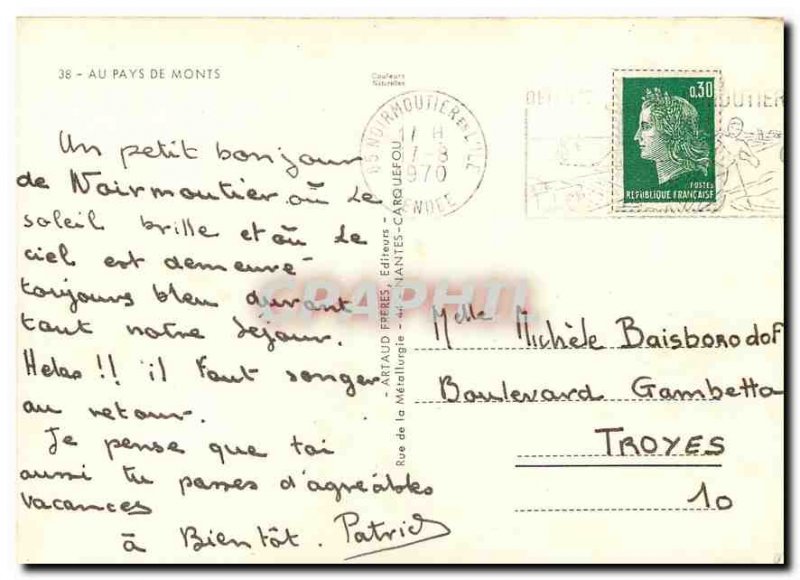 38 - AU PAYS DE MONTS
Couleurs
Naturelles
Un petit bonjour
de Noirmoutier où le
soleil brille et où le
ciel est demeuré
toujours bleu durant
tout notre séjour.
Helas !! il faut songer
au retour.
Je pense que toi
aussi tu passes d'agréables
vacances
à Bientôt. Patrick
- ARTAUD FRÈRES, Editeurs -
Rue de la Métallurgie - 44 - NANTES-CARQUEFOU
85 NOIRMOUTIER EN L'ILE
17 H
7-8
1970
VENDEE
0,30
POSTES
REPUBLIQUE FRANÇAISE
CPAPHIL
Melle Michèle Baisborodof
Boulevard Gambetta
TROYES
10